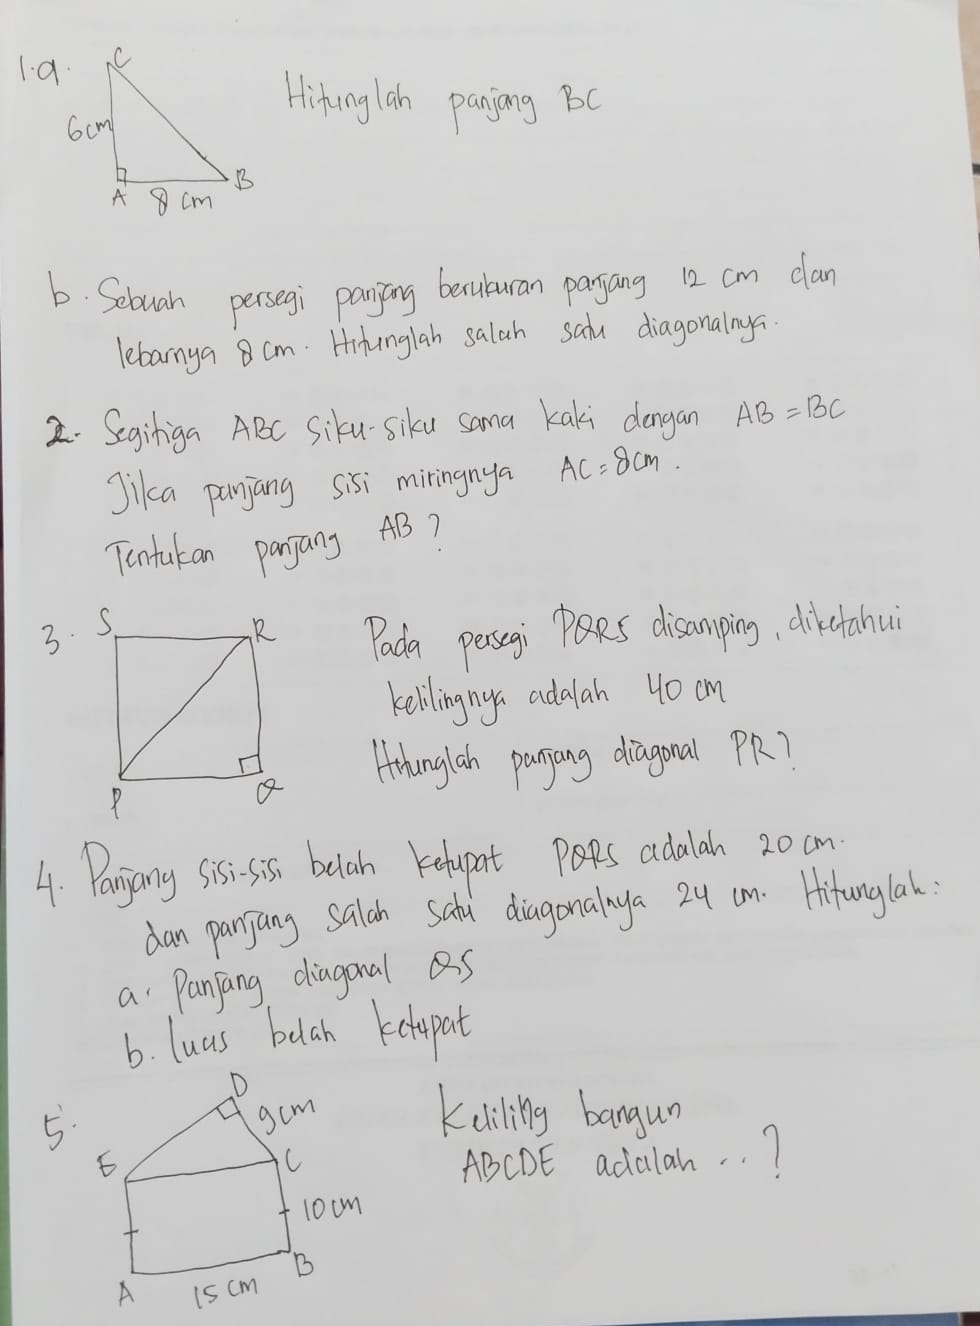 1.a.
C
6cm
A
8 cm
B
Hitunglah panjang BC
b. Sebuah persegi panjang berukuran panjang 12 cm dan
lebarnya 8 cm. Hitunglah salah satu diagonalnya.
2. Segitiga ABC siku-siku sama kaki dengan AB = BC
Jika panjang sisi miringnya AC = 8cm.
Tentukan panjang AB?
3.
S
R
P
Q
Pada persegi PQRS disamping, diketahui
kelilingnya adalah 40 cm
Hitunglah panjang diagonal PR?
4. Panjang sisi-sisi belah ketupat PQRS adalah 20 cm.
dan panjang salah satu diagonalnya 24 cm. Hitunglah:
a. Panjang diagonal QS
b. luas belah ketupat
5.
D
9cm
E
C
10 cm
A
15 cm
B
Keliling bangun
ABCDE adalah ..?